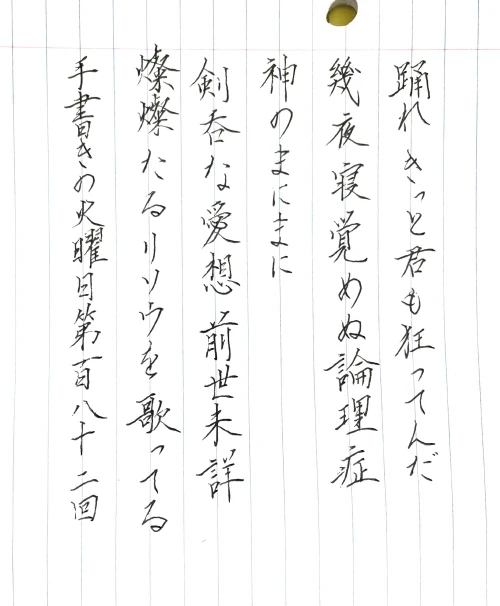 踊れ きっと君も狂ってんだ
幾夜寝覚めぬ論理症
神のまにまに
剣呑な愛想 前世未詳
燦燦たるリソウを歌ってる
手書きの火曜日第百八十二回